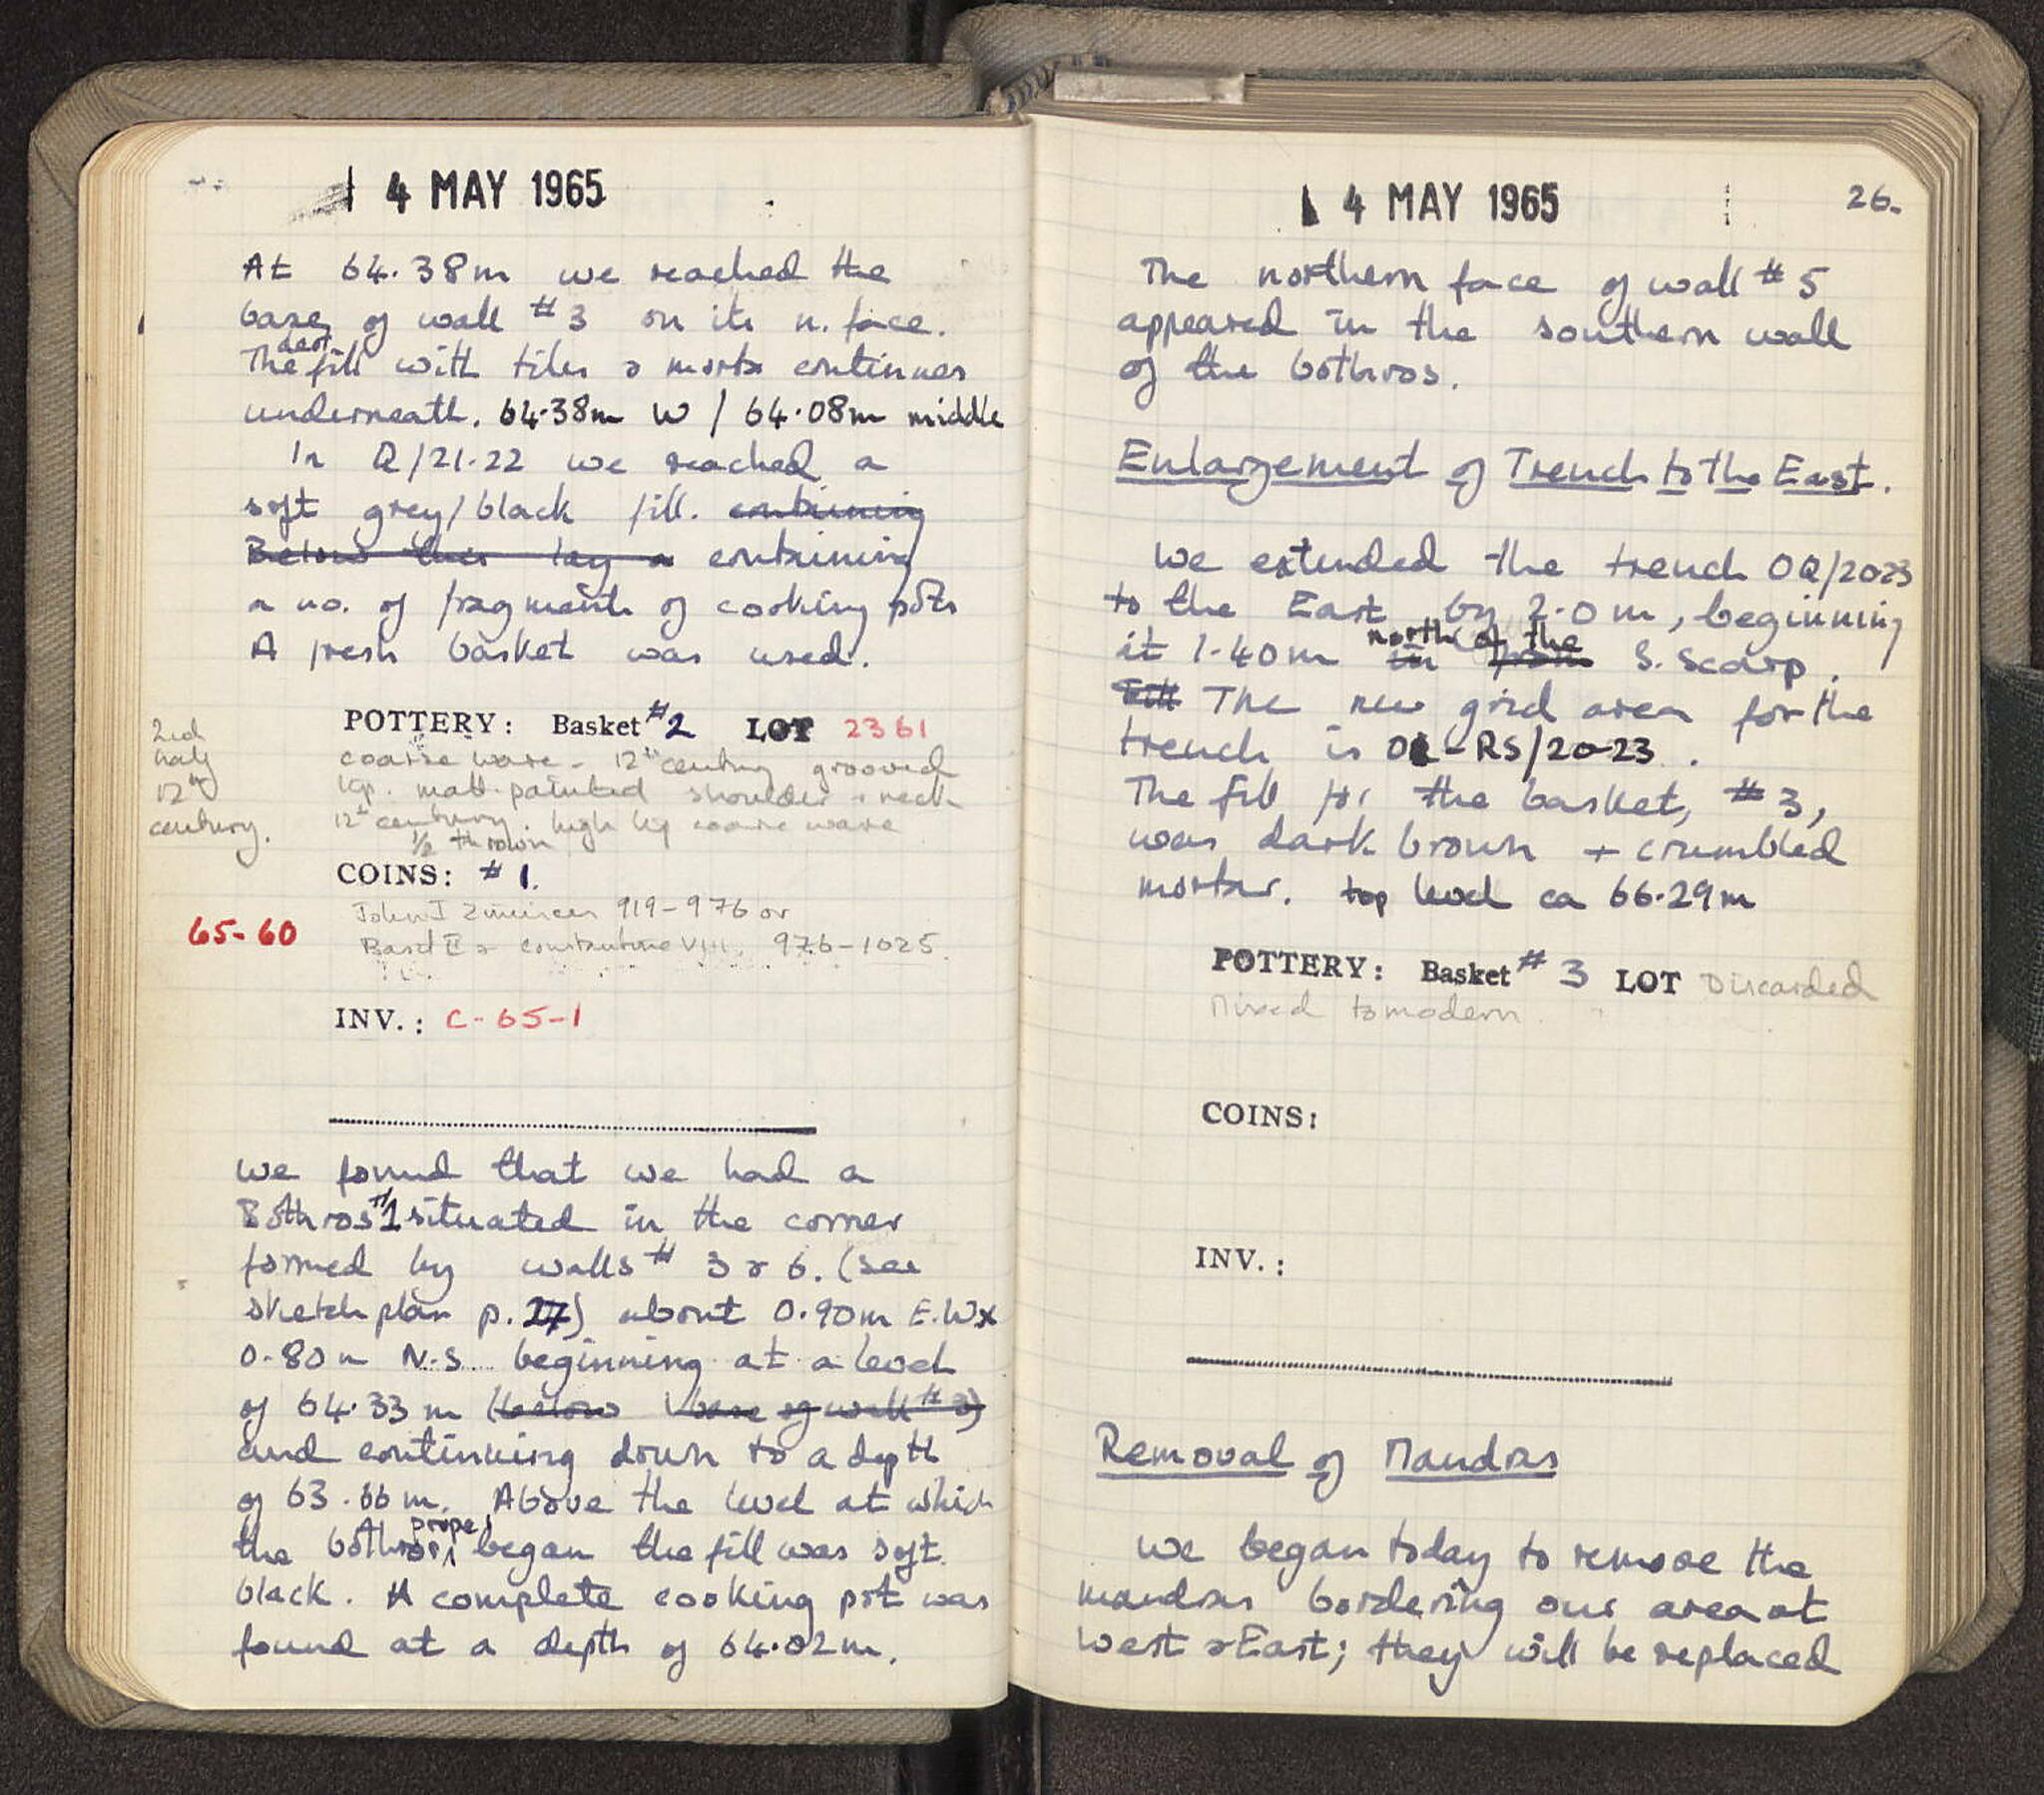 4 MAY 1965
At 64.38m we reached the
base of wall #3 on its n. face.
The dest. fill with tiles & mortar continues
underneath. 64.38m W / 64.08m middle
In Q/21-22 we reached a
soft grey/black fill. containing
Below this lay a containing
a no. of fragments of cooking pots
A fresh basket was used.
POTTERY: Basket #2 LOT 2361
2nd
half
12th
century.
coarse ware - 12th century grooved
matt-painted shoulder + neck
12th century. high coarse ware
1/2 thrown
COINS: #1.
65-60
John I Zimisces 919-976 or
Basil II & Constantine VIII. 976-1025.
INV.: C-65-1
we found that we had a
Bothros #1 situated in the corner
formed by walls # 3 & 6. (see
sketch plan p. 27) about 0.90m E.W x
0.80m N-S beginning at a level
of 64.33m (below base of wall #3)
and continuing down to a depth
of 63.66m. Above the level at which
the bothros proper began the fill was soft
black. A complete cooking pot was
found at a depth of 64.02m.
4 MAY 1965
26.
The northern face of wall #5
appeared in the southern wall
of the bothros.
Enlargement of Trench to the East.
We extended the trench OQ/2023
to the East by 2.0m, beginning
at 1.40m in north of the from S. scarp.
Fill The new grid area for the
trench is OQ-RS/20-23.
The fill for the basket, #3,
was dark brown + crumbled
mortar. top level ca 66.29m
POTTERY: Basket #3 LOT Discarded
Mixed to modern.
COINS:
INV.:
Removal of Mandras
We began today to remove the
mandras bordering our area at
West & East; they will be replaced